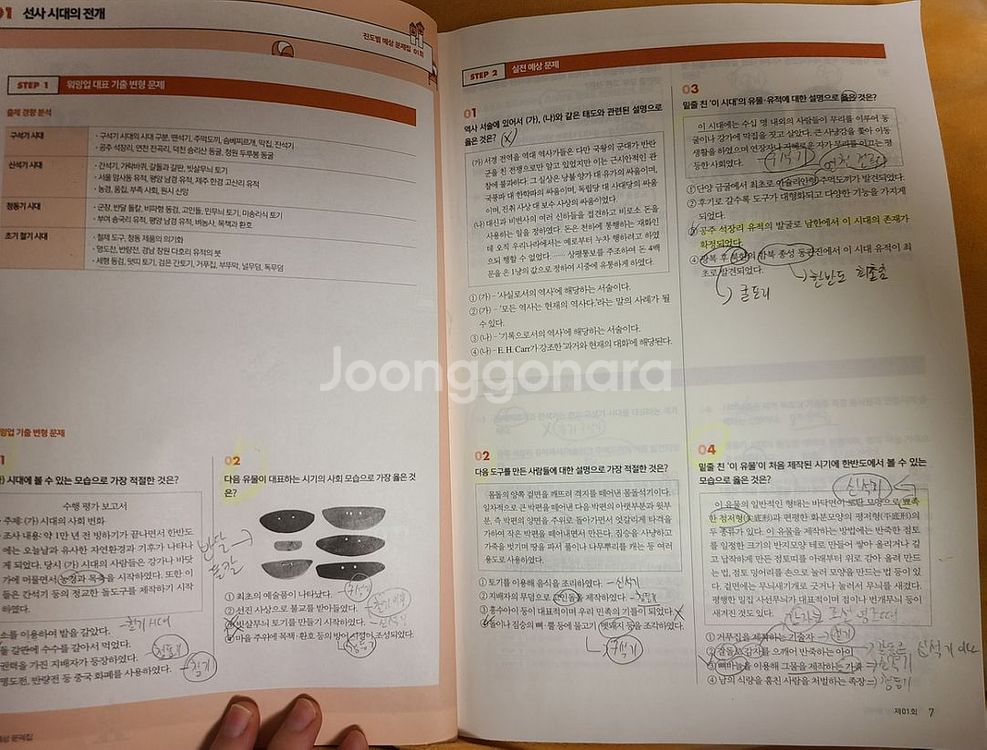 01 선사 시대의 전개
진도별 예상 문제집 01회
STEP 1 워밍업 대표 기출 변형 문제
출제 경향 분석
구석기 시대
· 구석기 시대의 시대 구분, 뗀석기, 주먹도끼, 슴베찌르개, 막집, 잔석기
· 공주 석장리, 연천 전곡리, 덕천 승리산 동굴, 청원 두루봉 동굴
신석기 시대
· 간석기, 가락바퀴, 갈돌과 갈판, 빗살무늬 토기
· 서울 암사동 유적, 평양 남경 유적, 제주 한경 고산리 유적
· 농경, 움집, 부족 사회, 원시 신앙
청동기 시대
· 군장, 반달 돌칼, 비파형 동검, 고인돌, 민무늬 토기, 미송리식 토기
· 부여 송국리 유적, 평양 남경 유적, 벼농사, 목책과 환호
초기 철기 시대
· 철제 도구, 청동 제품의 의기화
· 명도전, 반량전, 경남 창원 다호리 유적의 붓
· 세형 동검, 덧띠 토기, 검은 간토기, 거푸집, 부뚜막, 널무덤, 독무덤
워밍업 기출 변형 문제
시대에 볼 수 있는 모습으로 가장 적절한 것은?
수행 평가 보고서
주제: (가) 시대의 사회 변화
조사 내용: 약 1만 년 전 빙하기가 끝나면서 한반도
에는 오늘날과 유사한 자연환경과 기후가 나타나
게 되었다. 당시 (가) 시대의 사람들은 강가나 바닷
가에 머물면서 농경과 목축을 시작하였다. 또한 이
들은 간석기 등의 정교한 돌도구를 제작하기 시작
하였다.
소를 이용하여 밭을 갈았다. 철기시대
돌 갈판에 수수를 갈아서 먹었다.
권력을 가진 지배자가 등장하였다. 청동기
명도전, 반량전 등 중국 화폐를 사용하였다. 철기
02
다음 유물이 대표하는 시기의 사회 모습으로 가장 옳은 것
은?
반달
돌칼
① 최초의 예술품이 나타났다. 구석기
② 선진 사상으로 불교를 받아들였다.
③ 빗살무늬 토기를 만들기 시작하였다. 신석기
④ 마을 주위에 목책·환호 등의 방어 시설이 조성되었다.
STEP 2 실전 예상 문제
01
역사 서술에 있어서 (가), (나)와 같은 태도와 관련된 설명으로
옳은 것은?
(가) 서경 전역을 역대 역사가들은 다만 국왕의 군대가 반란
군을 친 전쟁으로만 알고 있었지만 이는 근시안적인 관
찰에 불과하다. 그 실상은 낭불 양가 대 유가의 싸움이며,
국풍파 대 한학파의 싸움이며, 독립당 대 사대당의 싸움
이며, 진취 사상 대 보수 사상의 싸움이다.
(나) 대신과 비변사의 여러 신하들을 접견하고 비로소 돈을
사용하는 일을 정하였다. 돈은 천하에 통행하는 재화인
데 오직 우리나라에서는 예로부터 누차 행하려고 하였
으되 행할 수 없었다. …… 상평통보를 주조하여 돈 4백
문을 은 1냥의 값으로 정하여 시중에 유통하게 하였다.
① (가) - '사실로서의 역사'에 해당하는 서술이다.
② (가) - '모든 역사는 현재의 역사다.'라는 말의 사례가 될
수 있다.
③ (나) - '기록으로서의 역사'에 해당하는 서술이다.
④ (나) - E. H. Carr가 강조한 '과거와 현재의 대화'에 해당된다.
02
다음 도구를 만든 사람들에 대한 설명으로 가장 적절한 것은?
몸돌의 양쪽 겉면을 깨뜨려 격지를 떼어낸 몸돌석기이다.
일차적으로 큰 박편을 떼어낸 다음 박편의 아랫부분과 윗부
분, 측 박편의 양면을 주위로 돌아가면서 엇갈리게 타격을
가하여 작은 박편을 떼어내면서 만든다. 짐승을 사냥하고
가죽을 벗기며 땅을 파서 풀이나 나무뿌리를 캐는 등 여러
용도로 사용하였다.
① 토기를 이용해 음식을 조리하였다. 신석기
② 지배자의 무덤으로 고인돌을 제작하였다. 청동기
③ 흥수아이 등이 대표적이며 우리 민족의 기틀이 되었다.
④ 돌이나 짐승의 뼈·뿔 등에 물고기, 멧돼지 등을 조각하였다.
구석기
03
밑줄 친 '이 시대'의 유물·유적에 대한 설명으로 옳은 것은?
이 시대에는 수십 명 내외의 사람들이 무리를 이루어 동
굴이나 강가에 막집을 짓고 살았다. 큰 사냥감을 쫓아 이동
생활을 하였으며 연장자나 지혜로운 자가 무리를 이끄는 평
등한 사회였다. 구석기 연천 전곡리
① 단양 금굴에서 최초로 아슐리안형 주먹도끼가 발견되었다.
② 후기로 갈수록 도구가 대형화되고 다양한 기능을 가지게
되었다.
③ 공주 석장리 유적의 발굴로 남한에서 이 시대의 존재가
확정되었다.
④ 함북 종성 동관진에서 이 시대 유적이 최
초로 발견되었다.
굴포리
한반도 최초
04
밑줄 친 '이 유물'이 처음 제작된 시기에 한반도에서 볼 수 있는
모습으로 옳은 것은?
신석기
이 유물의 일반적인 형태는 바닥면이 포탄 모양으로 뾰족
한 첨저형(尖底形)과 편평한 화분모양의 평저형(平底形)의
두 종류가 있다. 이 유물을 제작하는 방법에는 반죽한 점토
를 일정한 크기의 반지모양 테로 만들어 쌓아 올리거나 길
고 납작하게 만든 점토띠를 아래부터 위로 감아 올려 만드
는 법, 점토 덩어리를 손으로 눌러 모양을 만드는 법 등이 있
다. 겉면에는 무늬새기개로 긋거나 눌러서 무늬를 새겼다.
평행한 밀집 사선무늬가 대표적이며 점이나 번개무늬 등이
새겨진 것도 있다. 감자는 조선
① 거푸집을 제작하는 기술자 철기
② 갈돌로 감자를 으깨어 반죽하는 아이 신석기
③ 뼈바늘을 이용해 그물을 제작하는 가족 신석기
④ 남의 식량을 훔친 사람을 처벌하는 족장 청동기
제01회 7
Joonggonara